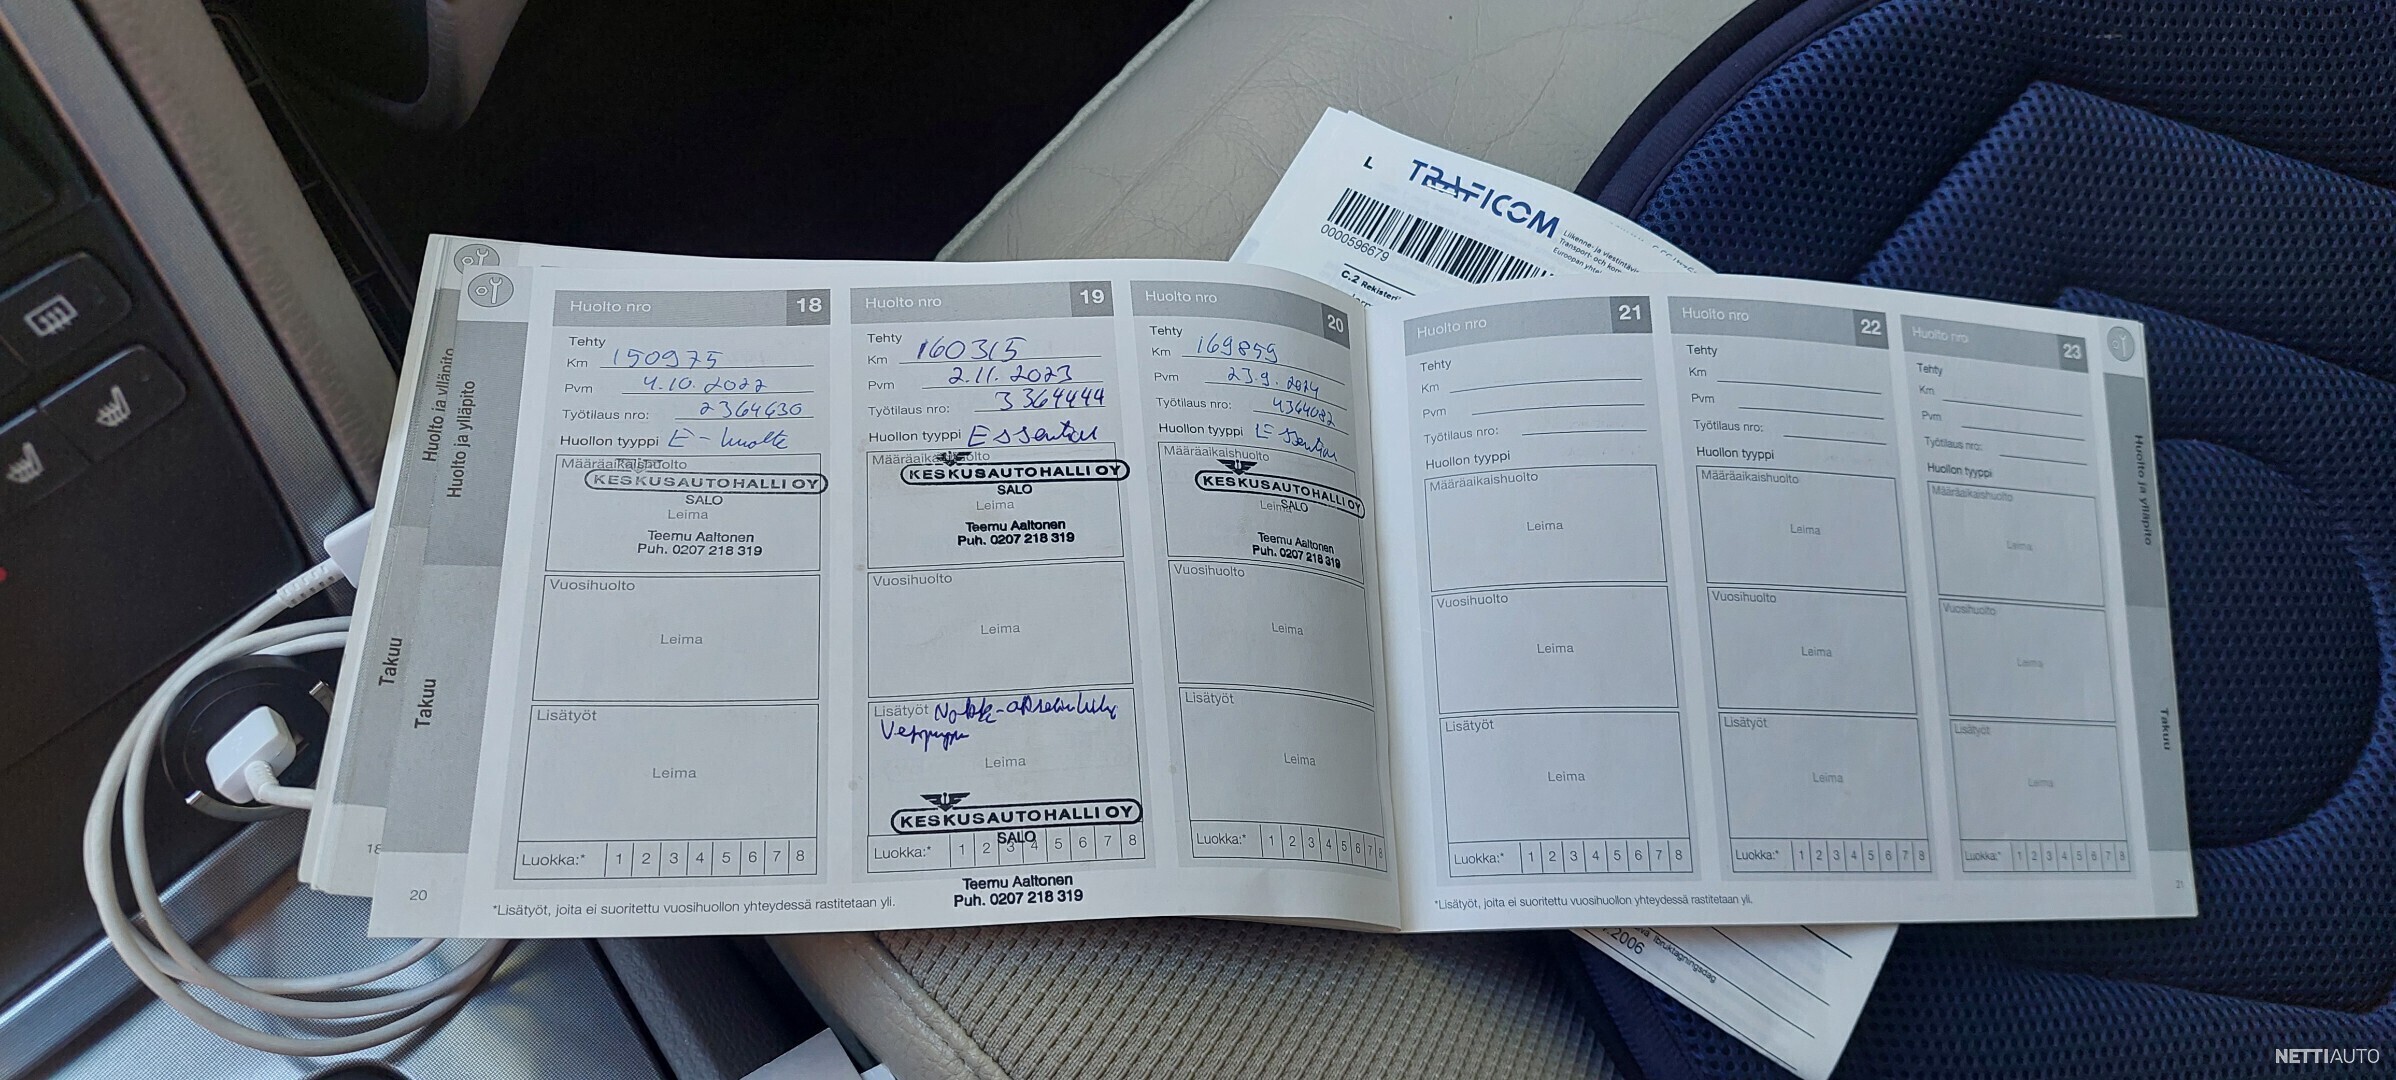 L TRAFICOM
Liikenne- ja viestintävi
Transport- och kom
Euroopan yhte
0000596679
C.2 Rekisteri
Huolto ja ylläpito
Takuu
18
Huolto ja ylläpito
Takuu
Huolto nro 18
Tehty
Km 150975
Pvm 4.10.2022
Työtilaus nro: 2364630
Huollon tyyppi E-huolto
Määräaikaishuolto
KESKUSAUTOHALLI OY
SALO
Leima
Teemu Aaltonen
Puh. 0207 218 319
Vuosihuolto
Leima
Lisätyöt
Leima
Luokka:* 1 2 3 4 5 6 7 8
Huolto nro 19
Tehty
Km 160315
Pvm 2.11.2023
Työtilaus nro: 3364444
Huollon tyyppi Essential
Määräaikaishuolto
KESKUSAUTOHALLI OY
SALO
Leima
Teemu Aaltonen
Puh. 0207 218 319
Vuosihuolto
Leima
Lisätyöt
Leima
KESKUSAUTOHALLI OY
SALO
Luokka:* 1 2 3 4 5 6 7 8
Teemu Aaltonen
Puh. 0207 218 319
Huolto nro 20
Tehty
Km 169859
Pvm 23.9.2024
Työtilaus nro: 4364082
Huollon tyyppi Essential
Määräaikaishuolto
KESKUSAUTOHALLI OY
SALO
Leima
Teemu Aaltonen
Puh. 0207 218 319
Vuosihuolto
Leima
Lisätyöt
Leima
Luokka:* 1 2 3 4 5 6 7 8
20
*Lisätyöt, joita ei suoritettu vuosihuollon yhteydessä rastitetaan yli.
Huolto nro 21
Tehty
Km
Pvm
Työtilaus nro:
Huollon tyyppi
Määräaikaishuolto
Leima
Vuosihuolto
Leima
Lisätyöt
Leima
Luokka:* 1 2 3 4 5 6 7 8
Huolto nro 22
Tehty
Km
Pvm
Työtilaus nro:
Huollon tyyppi
Määräaikaishuolto
Leima
Vuosihuolto
Leima
Lisätyöt
Leima
Luokka:* 1 2 3 4 5 6 7 8
Huolto nro 23
Tehty
Km
Pvm
Työtilaus nro:
Huollon tyyppi
Määräaikaishuolto
Leima
Vuosihuolto
Leima
Lisätyöt
Leima
Luokka:* 1 2 3 4 5 6 7 8
*Lisätyöt, joita ei suoritettu vuosihuollon yhteydessä rastitetaan yli.
21
Huolto ja ylläpito
Takuu
ibruktagningsdag
.2006
NETTIAUTO